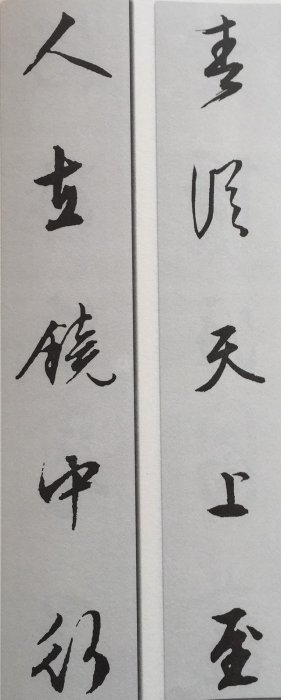 春從天上至
人在鏡中行